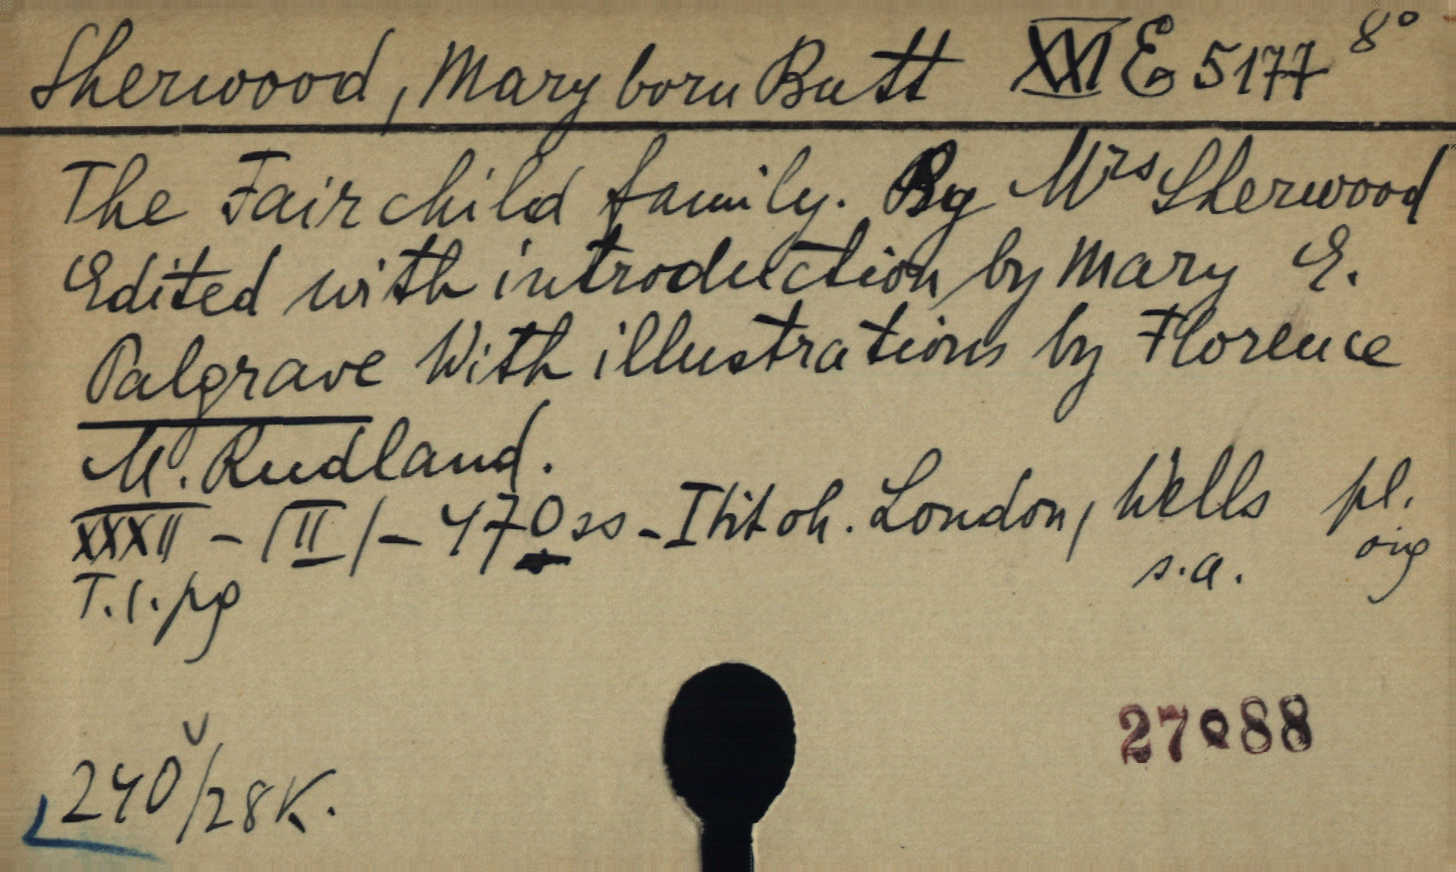 Sherwood, Mary born Butt XXI E 5177 8°
The Fairchild family. By Mrs Sherwood
Edited with introduction by Mary E.
Palgrave With illustrations by Florence
M. Rudland.
XXXII - (II) - 470 ss - 1 tit ob. London, Wells pl.
s.a. orig
T.1.pg
240/28K.
27088